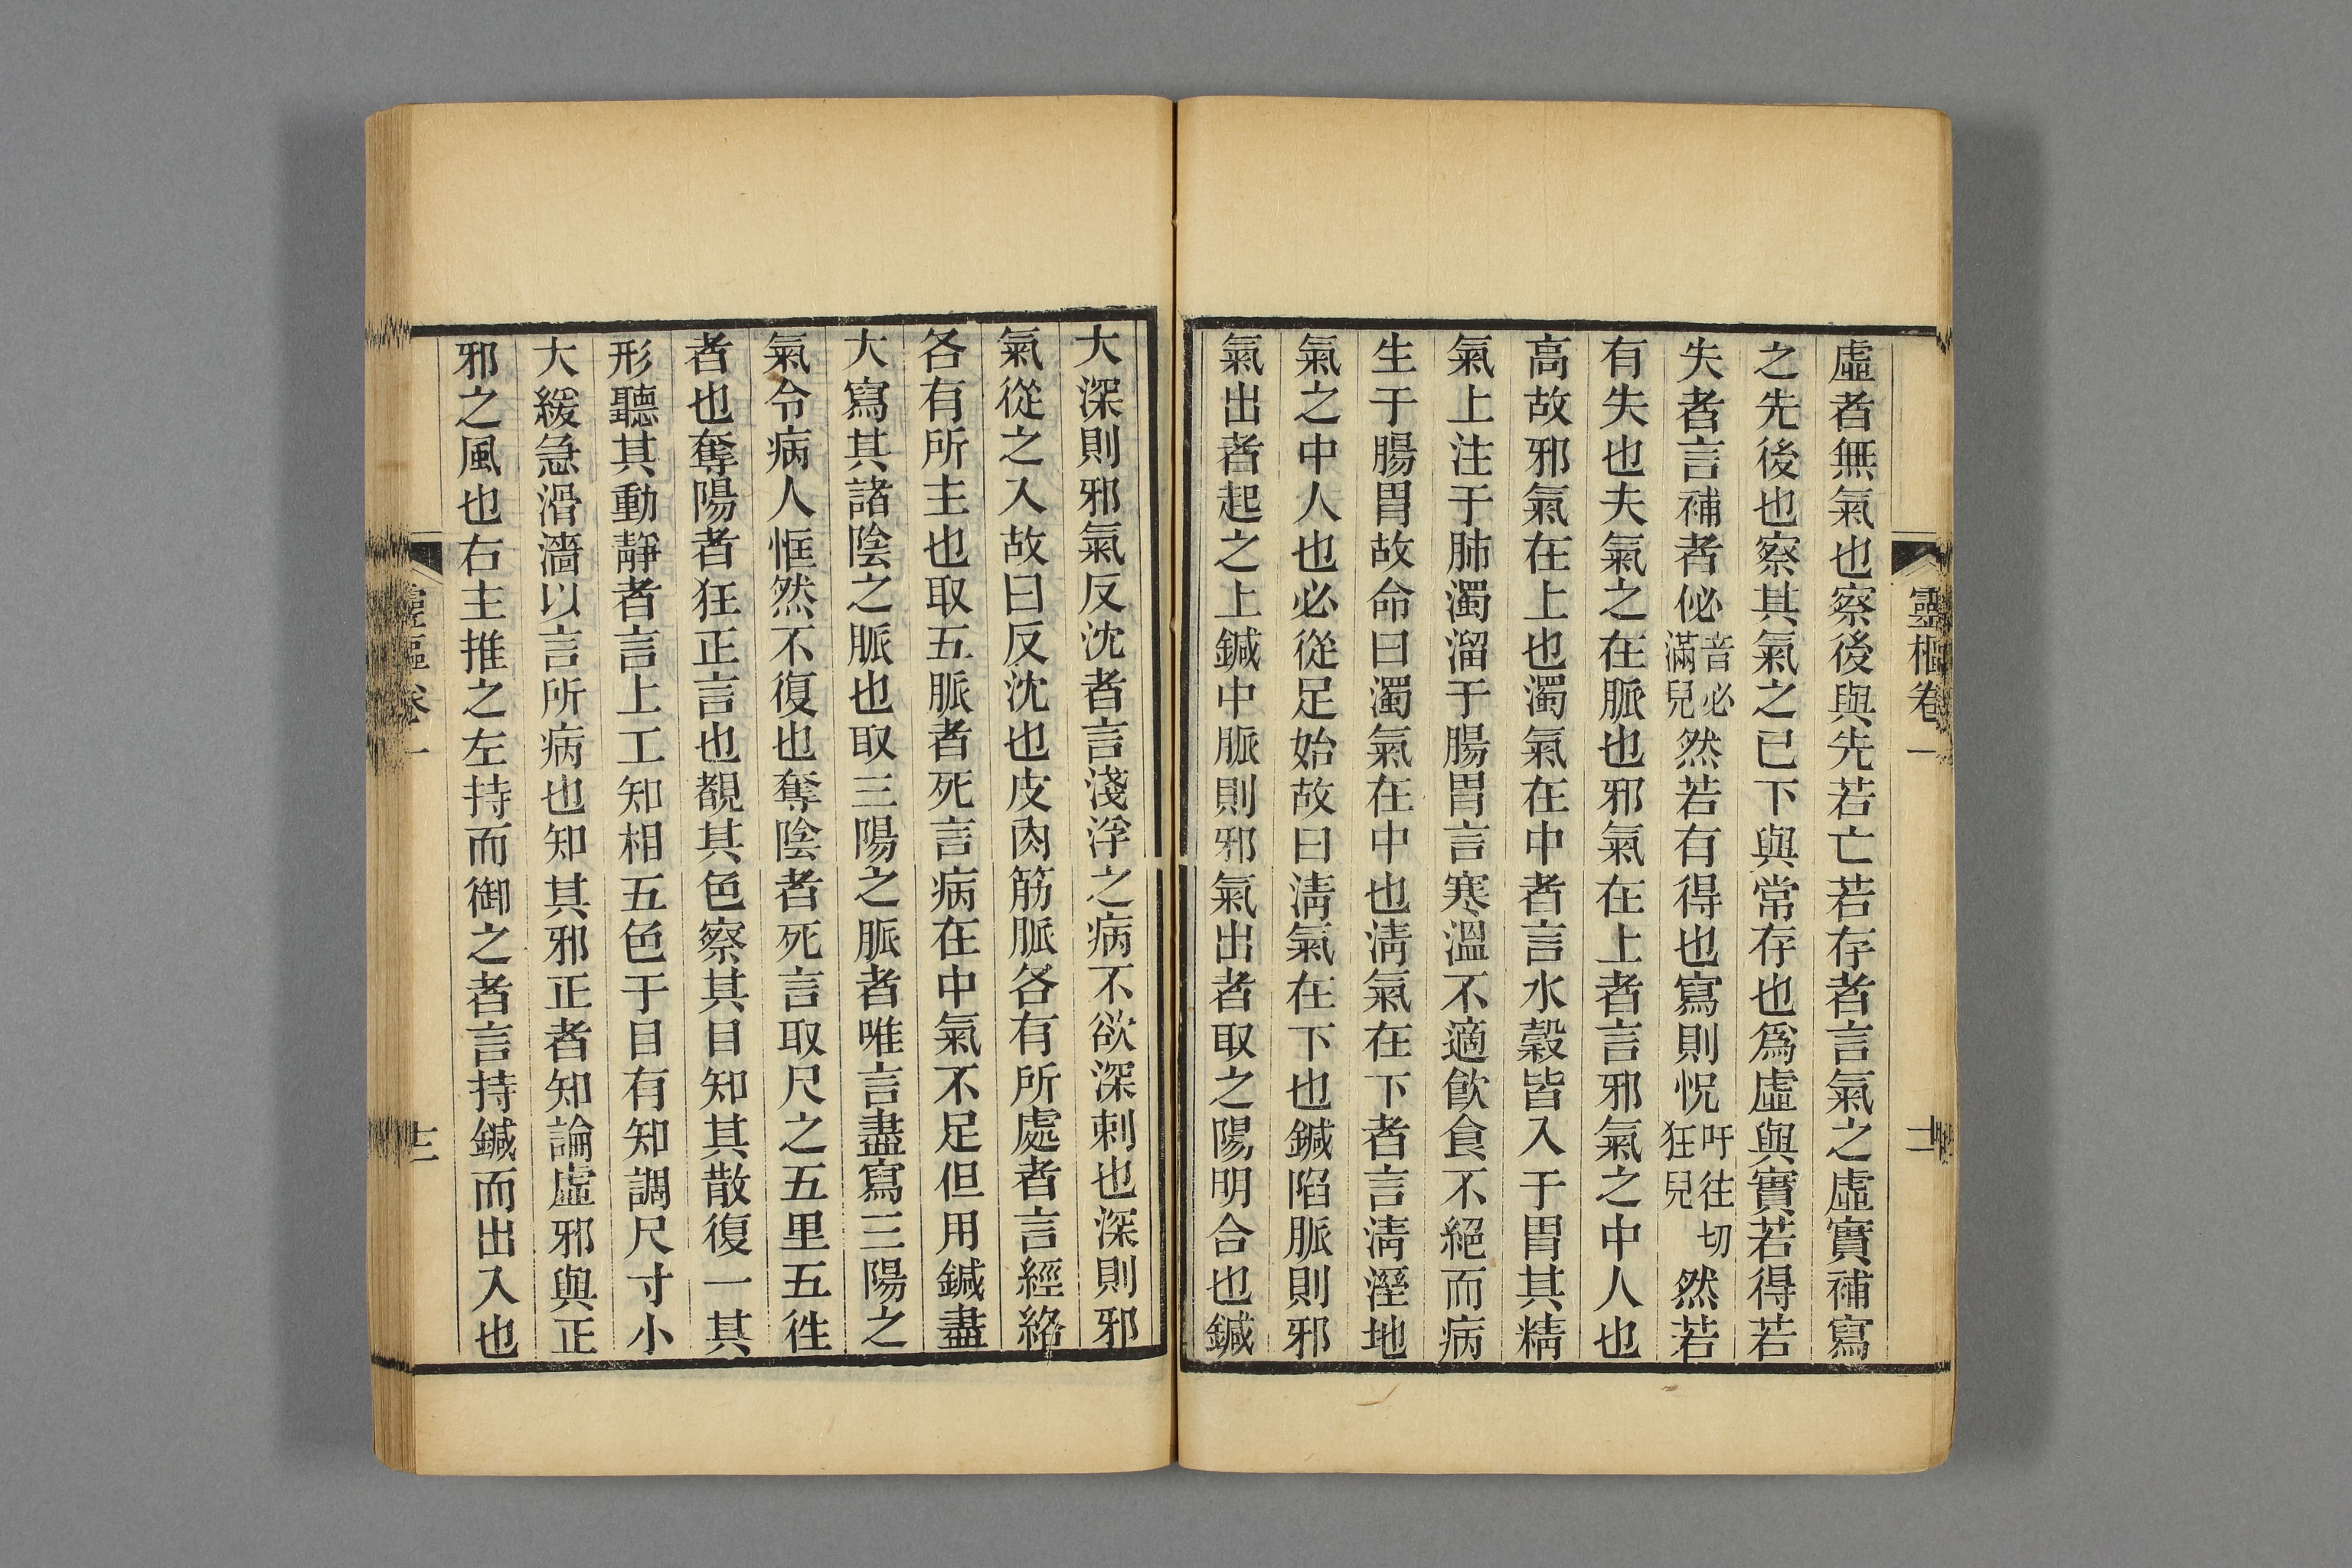 靈樞卷一
十一
虛者無氣也察後與先若亡若存者言氣之虛實補寫
之先後也察其氣之已下與常存也爲虛與實若得若
失者言補者佖音必滿皃然若有得也寫則怳吁往切狂皃然若
有失也夫氣之在脈也邪氣在上者言邪氣之中人也
高故邪氣在上也濁氣在中者言水穀皆入于胃其精
氣上注于肺濁溜于腸胃言寒溫不適飮食不絕而病
生于腸胃故命曰濁氣在中也淸氣在下者言淸溼地
氣之中人也必從足始故曰淸氣在下也鍼陷脈則邪
氣出者起之上鍼中脈則邪氣出者取之陽明合也鍼
大深則邪氣反沈者言淺浮之病不欲深刺也深則邪
氣從之入故曰反沈也皮肉筋脈各有所處者言經絡
各有所主也取五脈者死言病在中氣不足但用鍼盡
大寫其諸陰之脈也取三陽之脈者唯言盡寫三陽之
氣令病人恇然不復也奪陰者死言取尺之五里五徃
者也奪陽者狂正言也覩其色察其目知其散復一其
形聽其動靜者言上工知相五色于目有知調尺寸小
大緩急滑濇以言所病也知其邪正者知論虛邪與正
邪之風也右主推之左持而御之者言持鍼而出入也
靈樞卷一
十二